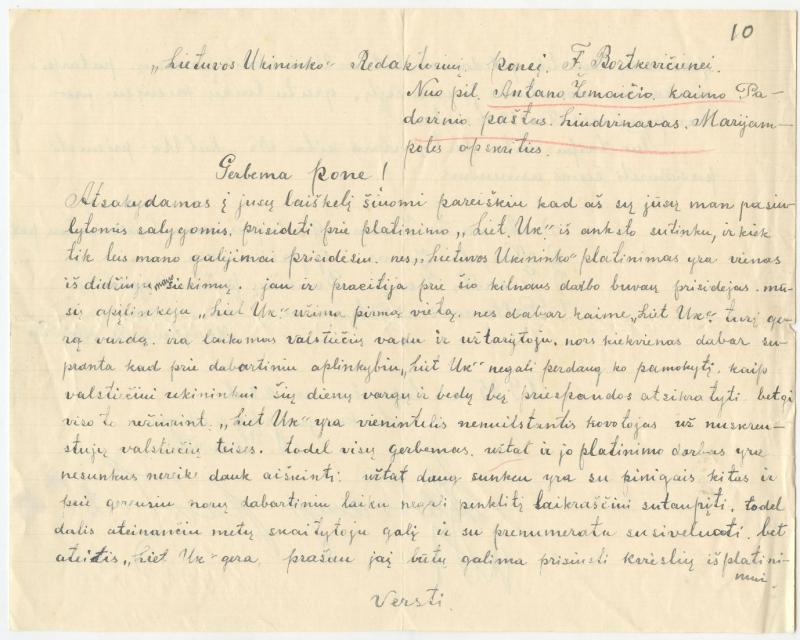 10
„Lietuvos Ukininko" Redaktorių ponei, F. Bortkevičienei.
Nuo pil. Antano Žemaičio kaimo Pa-
dovinio paštas Liudvinavas. Marijam-
poles apskrities.
Gerbema pone!
Atsakydamas į jusų laiškelį šiuomi pareiškiu kad aš sų jusų man pasiu-
lytomis salygomis, prisideti prie platinimo „Liet. Uk." iš anksto sutinku, ir kiek
tik bus mano galijimai prisidėsiu. nes „Lietuvos Ukininko" platinimas yra vienas
iš didžiujų mano siekimų. jau ir praeitija prie šio kilnaus darbo buvau prisidejas. mu-
sų apįlinkeju „Liet Uk." užima pirmą vietą. nes dabar kaime „Liet Uk". turį ge-
rą vardą. ira laikomas valstiečių vadu ir užtarįtoju. nors kiekvienas dabar su-
pranta kad prie dabartiniu aplinkybiu „Liet Uk" negali perdaug ko pamokytį. kaip
valstiečiui ukininkui šių dienų vargų ir bedų beį priespaudos atsikratyti. betgi
viso to nežiurint. „Liet Uk" yra vienintelis nenuilstantis kovotojas už nuskriau-
stųjų valstiečių teises. todel visų gerbemas. užtat ir jo platinimo darbas yra
nesunkus nereike dauk aišeinti. užtat daug sunkeu yra su pinigais kitas ir
prie gereusiu norų dabartiniu laiku negali penklitį laikraščiui sutaupįti. todel
dalis ateinančiu metų skaitytoju galį ir su prenumerata susiveluoti. bet
ateitis „Liet Uk" gera. prašau jaį butų galima prisiusti kvieslių iš platini-
mui.
Versti.